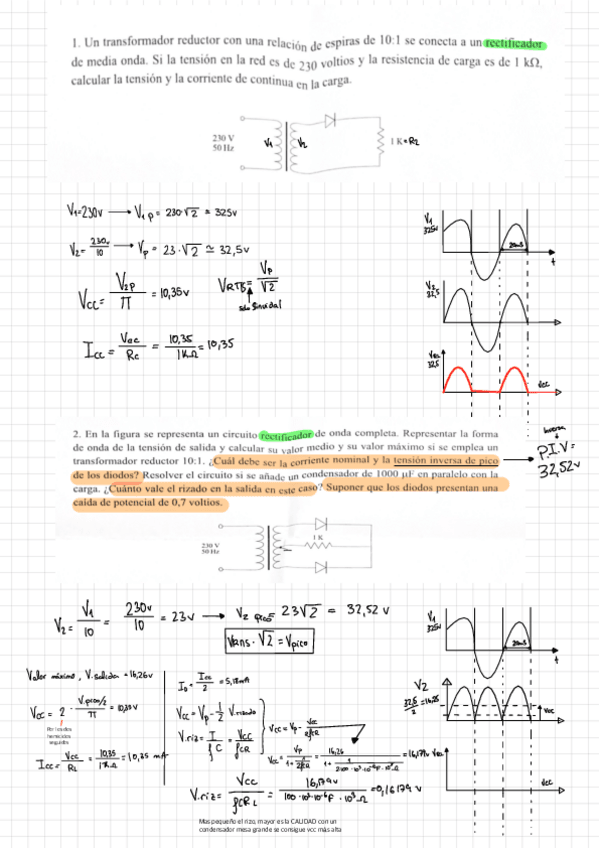 1. Un transformador reductor con una relación de espiras de 10:1 se conecta a un rectificador
de media onda. Si la tensión en la red es de 230 voltios y la resistencia de carga es de 1 kΩ,
calcular la tensión y la corriente de continua en la carga.
230 V
50 Hz
V₁
V₂
1 K = R2
V₁=230v → V₁p = 230·√2 = 325v
V₂= 230v/10 → Vp = 23·√2 ≃ 32,5v
Vcc= V2p/π = 10,35v
Vp/√2
solo Sinusoidal
Icc = Vcc/Rc = 10,35/1KΩ = 10,35
V₁
325v
20ms
t
V₂
32,5
32,5
Vcc
2. En la figura se representa un circuito rectificador de onda completa. Representar la forma
de onda de la tensión de salida y calcular su valor medio y su valor máximo si se emplea un
transformador reductor 10:1. ¿Cuál debe ser la corriente nominal y la tensión inversa de pico
de los diodos? Resolver el circuito si se añade un condensador de 1000 µF en paralelo con la
carga. ¿Cuánto vale el rizado en la salida en este caso? Suponer que los diodos presentan una
caída de potencial de 0,7 voltios.
inversa
P.I.V=
32,52v
230 V
50 Hz
1 K
V₂= V₁/10 = 230v/10 = 23v → V₂ pico= 23√2 = 32,52 v
·√2 = Vpico
Valor máximo, V.salida = 16,26v
Vcc = 2 · Vpico/2/π = 10,35v
Icc= Vcc/RL = 10,35/1KΩ = 10,35 mA
I₀ = Icc/2 = 5,17mA
Vcc = Vp - 1/2 V.rizado
V.riz = I/fC = Vcc/fCR
Vcc = Vp - Vcc/2fCR
V.riz = Vcc/fCRL = 16,179v/100·10³·10⁻⁶F·10³Ω = 0,16179 v
V₁
325v
20ms
V2
32,5/2 = 16,25
Vcc
Vcc
Mas pequeño el rizo, mayor es la CALIDAD con un
condensador mesa grande se consigue vcc más alta